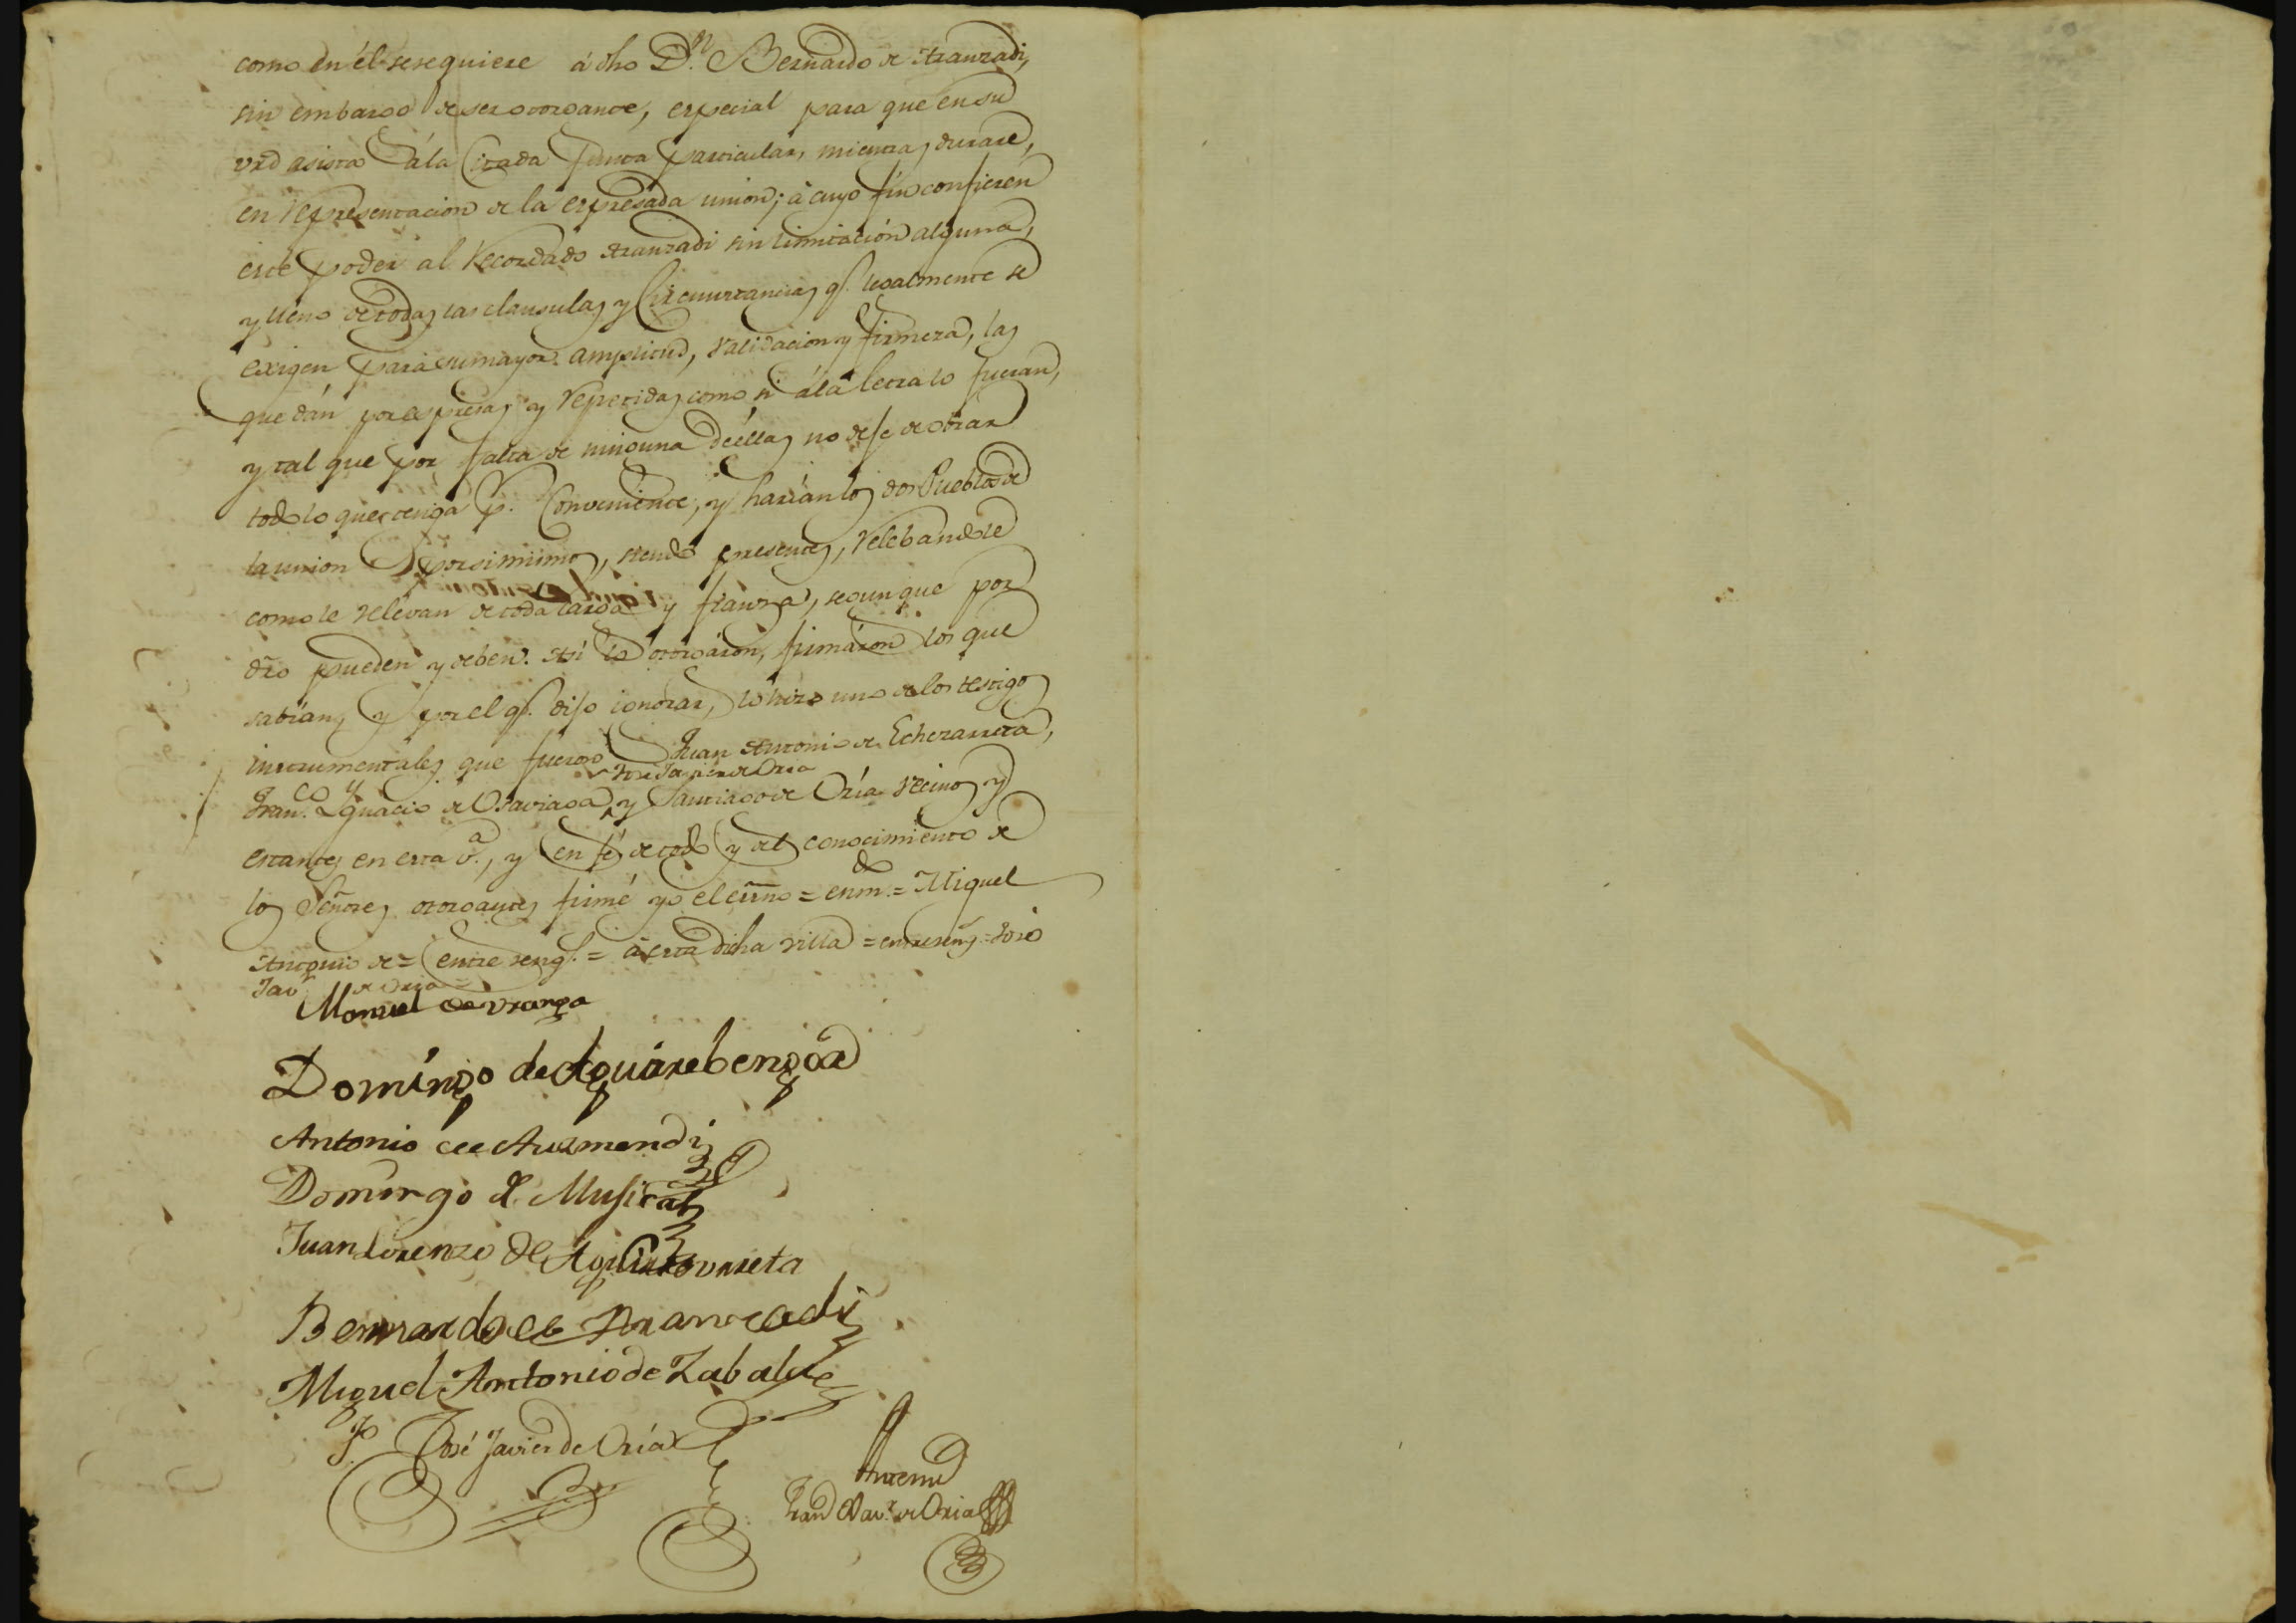 como en él se requiere á dho D.n Bernardo de Aranzadi,
sin embargo de ser otorgante, especial para que en su
vrd asista á la Citada Junta particular, mientras durare,
en representacion de la expresada union; á cuyo fin confieren
este poder al recordado Aranzadi sin limitación alguna,
y lleno de todas las clausulas y Circunstancias q.e legalmente se
exigen para su mayor amplitud, validacion y firmeza, las
que dán por expresas y repetidas como si á la letra lo fueran,
y tal que por falta de ninguna de éllas no deje de obrar
todo lo que tenga p.r Conveniente, y harían los dos Pueblos de
la union por si mismos, siendo presentes, relebandole
como le relevan de toda carga y fianza, segun que por
dro pueden y deben. Asi lo otorgáron, firmáron los que
sabían, y por el q.e dijo ignorar, lo hizo uno de los testigos
instrumentales que fueron Juan Antonio de Echezarreta,
José Javier de Oria
Fran.co Ygnacio de Otaviaga, y Santiago de Oría vecinos y
estantes en esta v.a, y en fé de todo y del conocimiento de
los Señores otorgantes firmé yo el essno = enm.do = Miguel
Antonio de = entre rengl. = á esta dicha villa = entre reng. = José
Jav.r de Oria =
Manuel de Uranga
Domíngo de Aguirebengoa
Antonio de Auzmendi
Domingo de Musica
Juan Lorenzo de Aguirre
Bernardo de Aranzadi
Miguel Antonio de Zabala
José Javier de Oría
Antemi
Juan Bau.ta de Oria